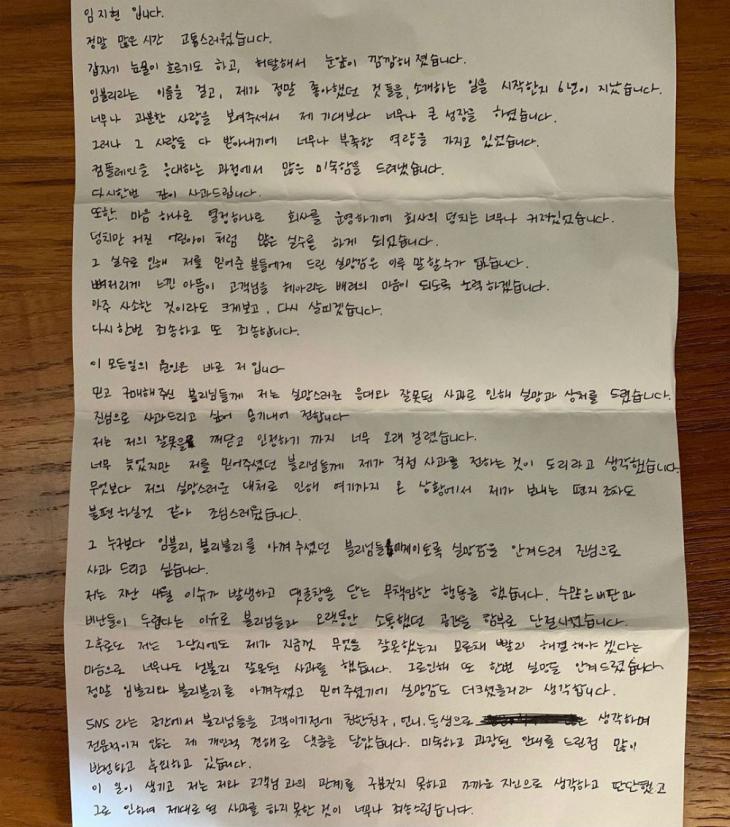 임지현 입니다.
정말 많은시간 고통스러웠습니다.
갑자기 눈물이 흐르기도 하고, 허탈해서 눈앞이 깜깜해 졌습니다.
임블리라는 이름을 걸고, 제가 정말 좋아했던 것들을 소개하는 일을 시작한지 6년이 지났습니다.
너무나 과분한 사랑을 보여주셔서 제 기대보다 너무나 큰 성장을 하였습니다.
그러나 그 사랑을 다 받아내기에 너무나 부족한 역량을 가지고 있었습니다.
컴플레인을 응대하는 과정에서 많은 미숙함을 드려냈습니다.
다시한번 깊이 사과드립니다.
또한, 마음 하나로 열정하나로 회사를 운영하기에 회사의 덩치는 너무나 커져있었습니다.
덩치만 커진 어린아이 처럼 많은 실수를 하게 되었습니다.
그 실수로 인해 저를 믿어준 분들에게 드린 실망감은 이루 말할수가 없습니다.
뼈저리게 느낀 아픔이 고객님을 헤아리는 배려의 마음이 되도록 노력하겠습니다.
아주 사소한 것이라도 크게보고, 다시 살피겠습니다.
다시한번 죄송하고 또 죄송합니다.
이 모든일의 원인은 바로 저 입니다
믿고 구매해주신 블리님들께 저는 실망스러운 응대와 잘못된 사과로 인해 실망과 상처를 드렸습니다.
진심으로 사과드리고 싶어 용기내어 전합니다
저는 저의 잘못을 깨닫고 인정하기 까지 너무 오래 걸렸습니다.
너무 늦었지만 저를 믿어주셨던 블리님들께 제가 직접 사과를 전하는 것이 도리라고 생각했습니다.
무엇보다 저의 실망스러운 대처로 인해 여기까지 온 상황에서 제가 보내는 편지 조차도
불편하실것 같아 조심스러웠습니다.
그 누구보다 임블리, 블리블리를 아껴 주셨던 블리님들께 이토록 실망감을 안겨드려 진심으로
사과 드리고 싶습니다.
저는 지난 4월 이슈가 발생하고 댓글창을 닫는 무책임한 행동을 했습니다. 수많은 비판과
비난들이 두렵다는 이유로 블리님들과 오랫동안 소통했던 공간을 함부로 단절시켰습니다.
그후로도 저는 그당시에도 제가 지금껏 무엇을 잘못했는지 모른채 빨리 해결해야 겠다는
마음으로 너무나도 섣불리 잘못된 사과를 했습니다. 그로인해 또 한번 실망을 안겨드렸습니다
정말 임블리와 블리블리를 아껴주셨고 믿어주셨기에 실망감도 더크셨을거라 생각합니다.
SNS 라는 공간에서 블리님들을 고객이기전에 친한친구, 언니, 동생으로 생각하며
전문적이지 않은 제 개인적 견해로 댓글을 달았습니다. 미숙하고 과장된 안내를 드린점 많이
반성하고 후회하고 있습니다.
이 일이 생기고 저는 저와 고객님 과의 관계를 구분짓지 못하고 가까운 지인으로 생각하고 판단했고
그로 인하여 제대로 된 사과를 하지 못한 것이 너무나 죄송스럽습니다.